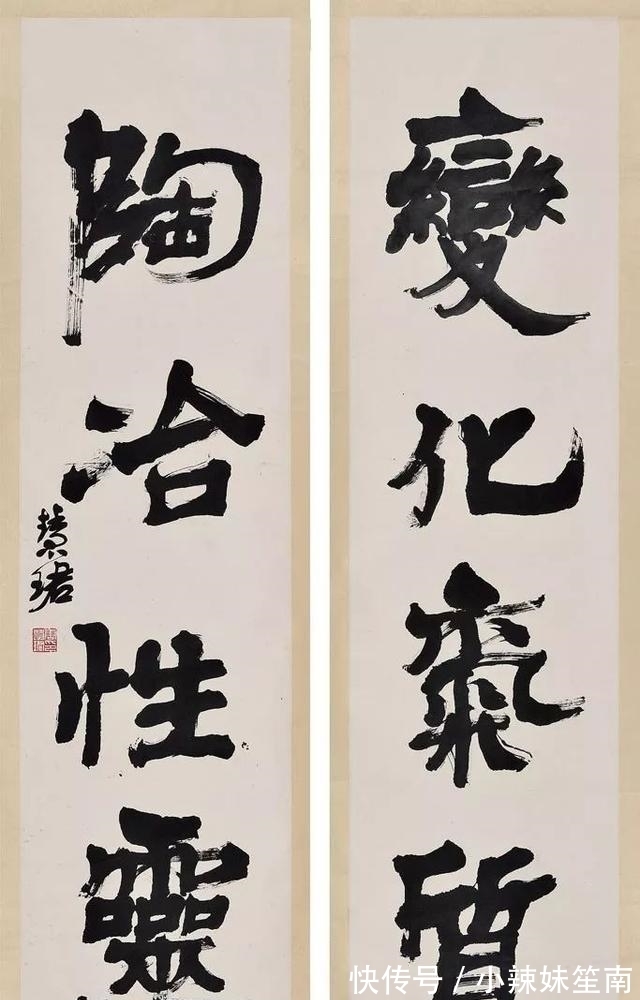 變化氣質
陶冶性靈
慧珺
快传号 / 小辣妹笙南